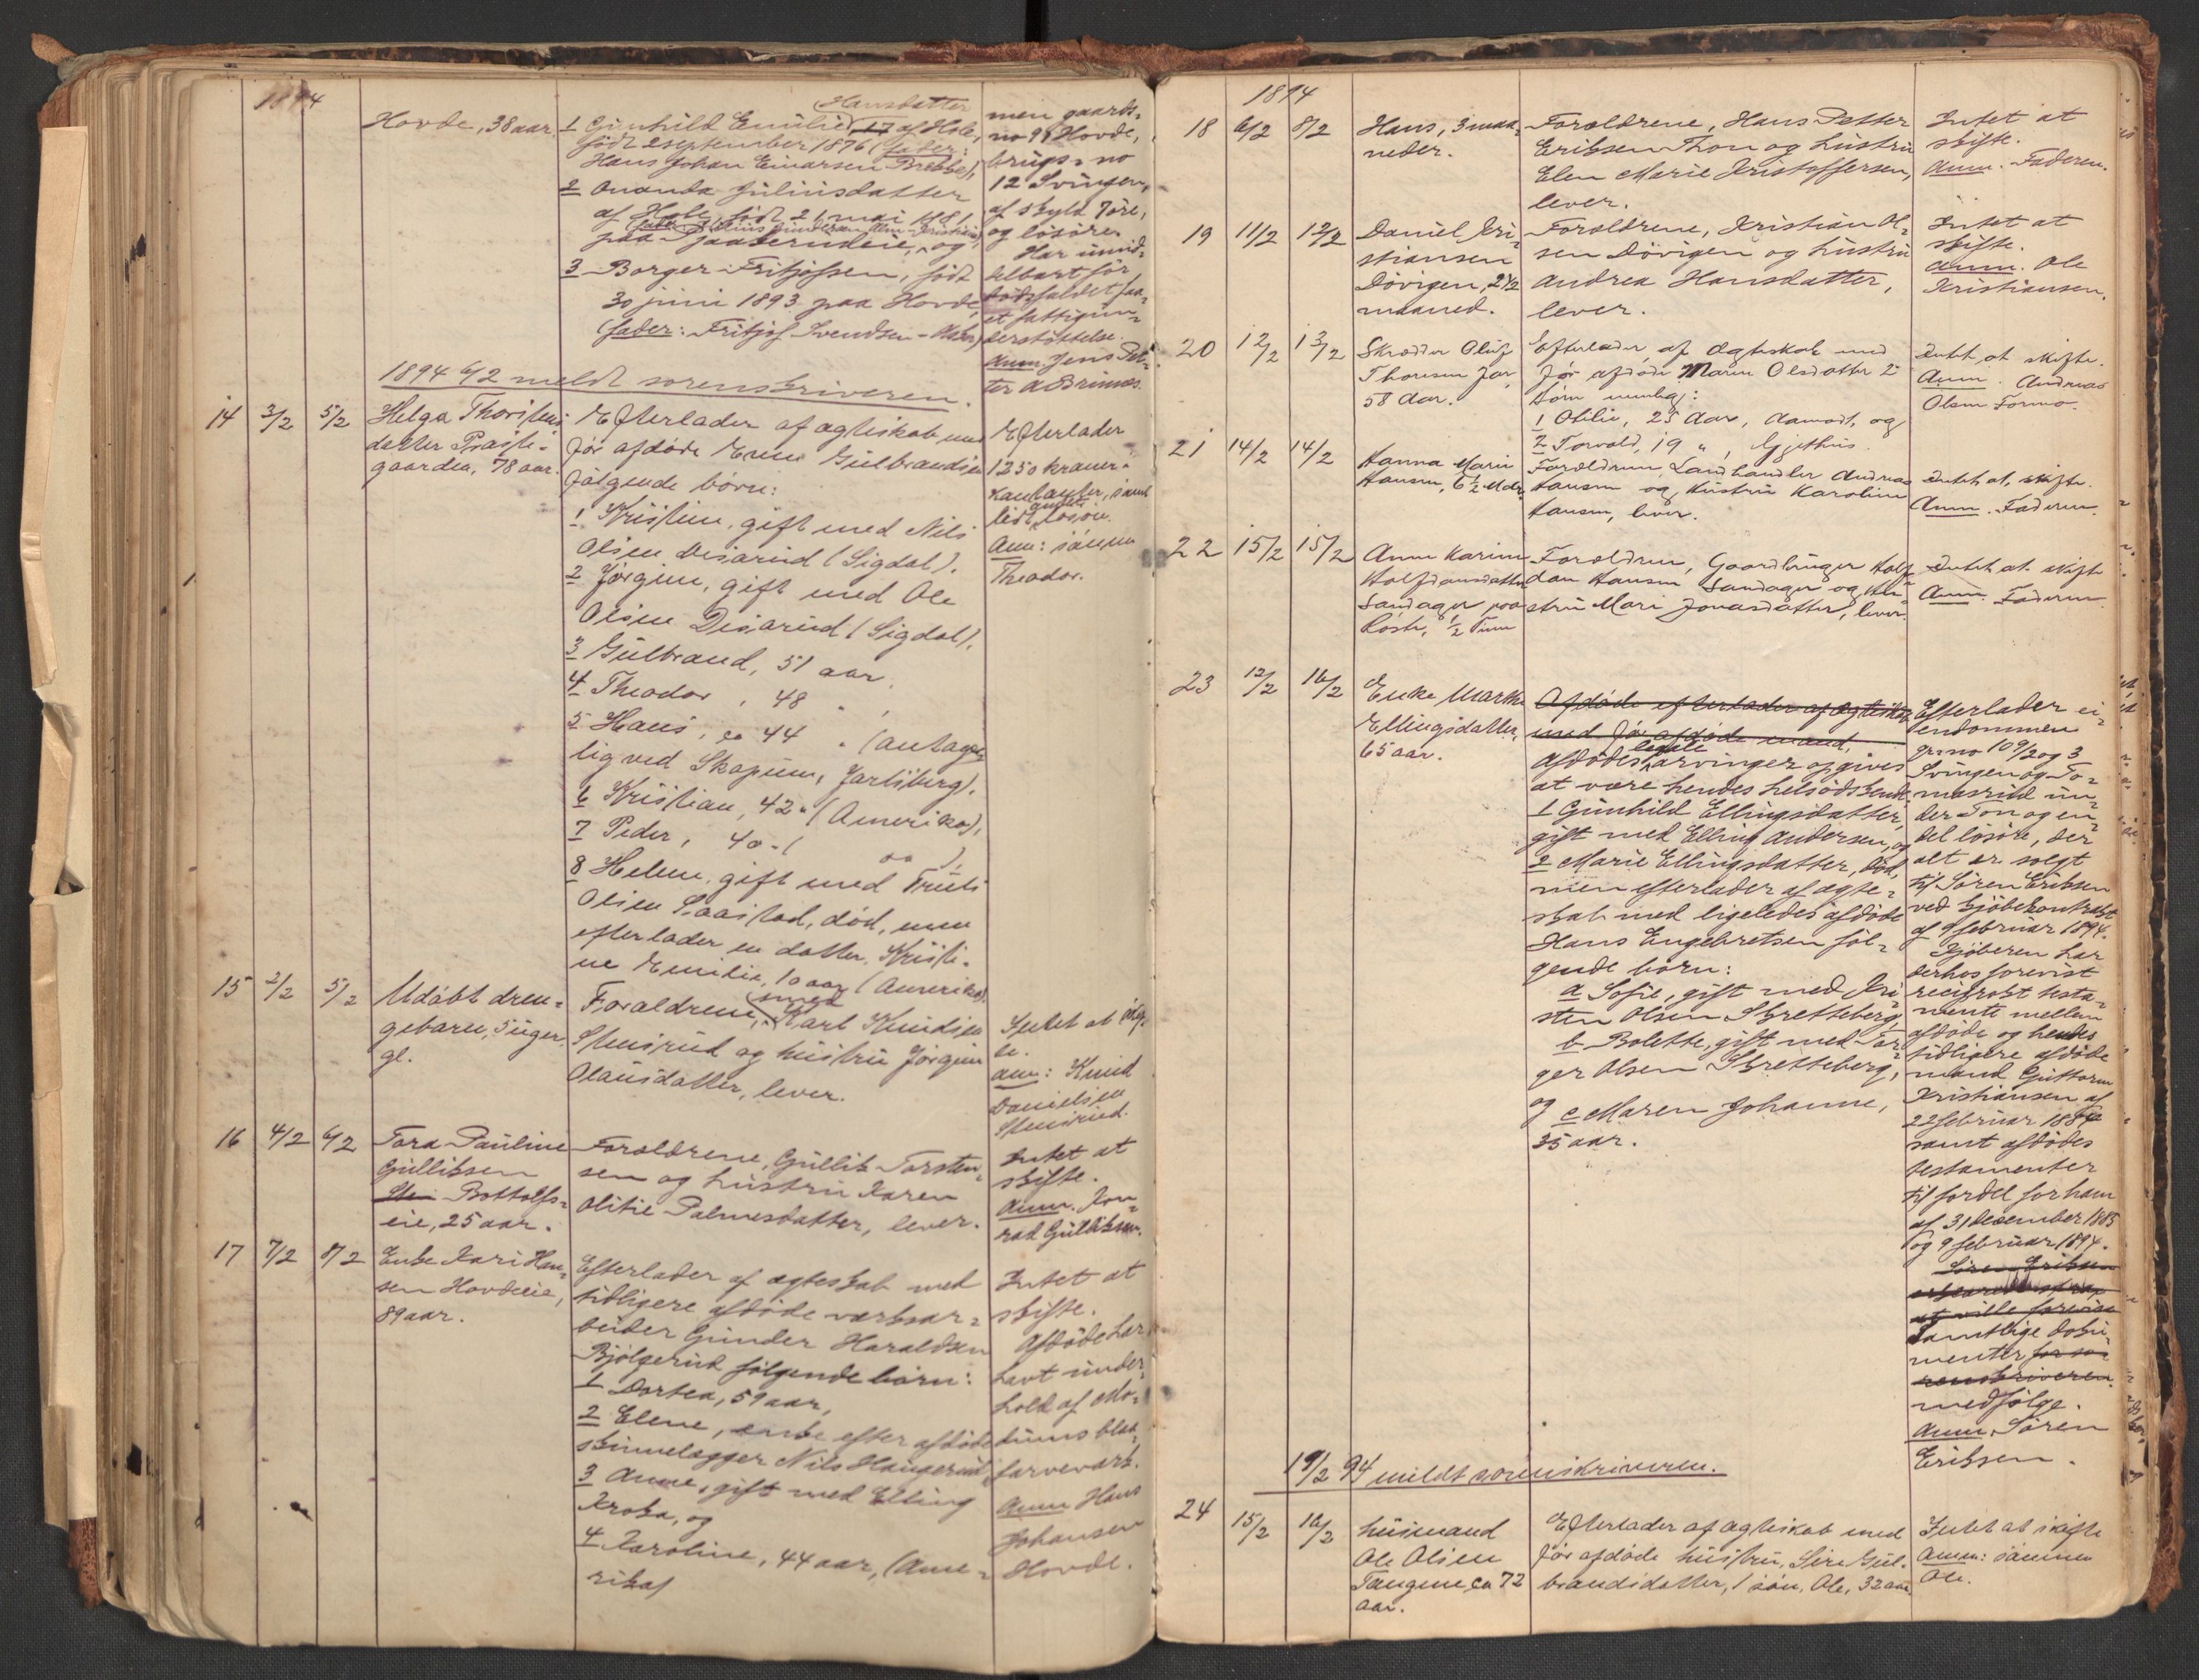 1894
Hovde, 38 aar.
Hansdatter
1 Gunhild Emilie, 17 af Hole,
født 2 september 1876 (fader:
Hans Johan Einarsen Brekke),
2 Ananda Juliusdatter
af Hole, født 21 mai 1881
paa Gaaserudeie, og
3 Borger Fritjofsen, født
30 juni 1893 paa Hovde,
(fader: Fritjof Svendsen
men gaards-
no 98 Hovde,
brugs-no
12 Svingen,
af skyld 7 øre,
og løsøre.
Har umid-
delbart før
dødsfaldet faa-
et fattigun-
derstøttelse.
Anm. Jens Pet-
ter A Brünes.
1894 6/2 meldt sorenskriveren.
14 3/2 5/2
Helga Thorstens
datter Præste-
gaarden, 78 aar.
Efterlader af ægteskab med
før afdøde Even Gulbrandsen
følgende børn:
1 Kristine, gift med Nils
Olsen Disarud (Sigdal).
2 Jørgine, gift med Ole
Olsen Disarud (Sigdal),
3 Gulbrand, 51 aar,
4 Theodor, 48 " ,
5 Hans, ca 44 " (antage-
lig ved Skopum, Jarlsberg),
6 Kristian, 42 " (Amerika),
7 Peder, 40 - ( do ),
8 Helene, gift med Truls
Olsen Saastad, død, men
efterlader en datter, Kristi-
ne Emilie, 10 aar (Amerika).
Efterlader
1250 kroner
kontanter, samt
lidt løsøre.
Anm: sønnen
Theodor.
15 2/2 5/2
Udøbt dren-
gebarn, 5 uger
gl.
Forældrene, smed Karl Knudsen
Stensrud og hustru Jørgine
Olausdatter, lever.
Intet at skif-
te.
Anm: Knud
Danielsen
Stensrud.
16 4/2 6/2
Tora Pauline
Gulliksen
Bottolfs-
eie, 25 aar.
Forældrene, Gullik Torsten-
sen og hustru Karen
Olitie Palmesdatter, lever.
Intet at
skifte.
Anm. Kon-
rad Gulliksen.
17 7/2 8/2
Enke Kari Han-
sen Hovdeeie,
89 aar.
Efterlader af ægteskab med
tidligere afdøde verksar-
beider Gunder Haraldsen
Bjølgerud følgende børn:
1 Dortea, 59 aar,
2 Elene, enke efter afdøde
skinnelægger Nils Haugerud
3 Anne, gift med Elling
Kroka, og
4 Karoline, 44 aar, (Ame-
rika)
Intet at
skifte.
Afdøde har
havt under-
hold af Mo-
dums blaa-
farveværk.
Anm Hans
Johansen
Hovde.
1894
18 6/2 8/2
Hans, 3 maa-
neder.
Forældrene, Hans Petter
Eriksen Thon og hustru
Elen Marie Kristoffersen,
lever.
Intet at
skifte.
Anm. Faderen.
19 11/2 12/2
Daniel Kri-
stiansen
Døvigen, 2 1/2
maaned.
Forældrene, Kristian Ol-
sen Døvigen og hustru
Andrea Hansdatter,
lever.
Intet at
skifte.
Anm. Ole
Kristiansen.
20 12/2 13/2
Skrædder Oluf
Thoresen
58 Aar.
Efterlader af Ægteskab med
før afdøde Maren Olsdatter 2
Børn nemlig:
1 Otilie, 25 Aar, Aamodt, og
2 Torvald, 19 " , Gjethus.
Intet at skifte.
Anm. Andreas
Olsen Formo.
21 14/2 14/2
Hanna Marie
Hansen, 6 1/2 Mdr
Forældrene, Landhandler Andreas
Hansen og Hustru Karoline
Hansen, lever.
Intet at skifte.
Anm. Faderen
22 15/2 15/2
Anne Karine
Halfdansdatter
Sandager paa
1/2 Time
Forældrene, Gaardbruger Half-
dan Hansen Sandager og Hu-
stru Mari Jonasdatter, lever.
Intet at skifte
Anm. Faderen
23 12/2 16/2
Enke Marthe
Ellingsdatter,
65 aar.
Afdøde efterlader af ægteskab
med før afdøde mand,
Afdødes legale arvinger opgives
at være hendes helsødskende
1 Gunhild Ellingsdatter,
gift med Elling Andersen, og
2 Marie Ellingsdatter, død,
men efterlader af ægte-
skab med ligeledes afdøde
Hans Engebretsen føl-
gende børn:
a Sofie, gift med Kri-
sten Olsen Skretteberg,
b Bolette, gift med Tor-
ger Olsen Skretteberg,
og c Maren Johanne,
35 aar.
Efterlader ei-
endommen
gr no 109/2 og 3
Svingen og To-
masrud un-
der Ton og en
del løsøre, der
alt er solgt
til Søren Eriksen
ved kjøbekontrakt
af 9 februar 1894.
Kjøberen har
derhos forevist
reciprokt testa-
mente mellem
afdøde og hendes
tidligere afdøde
mand Guttorm
Kristiansen af
22 februar 1884
samt afdødes
testamenter
til fordel for ham
af 31 december 1885
og 9 februar 1894.
Søren Eriksen
at ville forevise
Samtlige doku-
menter for so-
renskriveren.
medfølge.
Anm. Søren
Eriksen.
19/2 94 meldt sorenskriveren.
24 15/2 16/2
Husmand
Ole Olsen
Tangene, ca 72
aar.
Efterlader af ægteskab med
før afdøde hustru, Siri Gul-
brandsdatter, 1 søn, Ole, 32 aar.
Intet at skifte
Anm: sønnen
Ole.